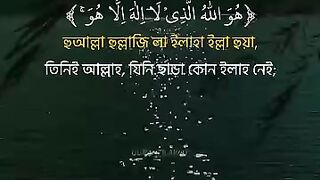 ﴿هُوَ اللّٰهُ الَّذِىْ لَا اِلٰهَ اِلَّا هُوَ ۚ﴾
হুআল্লা হুল্লাজি লা ইলাহা ইল্লা হুয়া,
তিনিই আল্লাহ, যিনি ছাড়া কোন ইলাহ নেই;